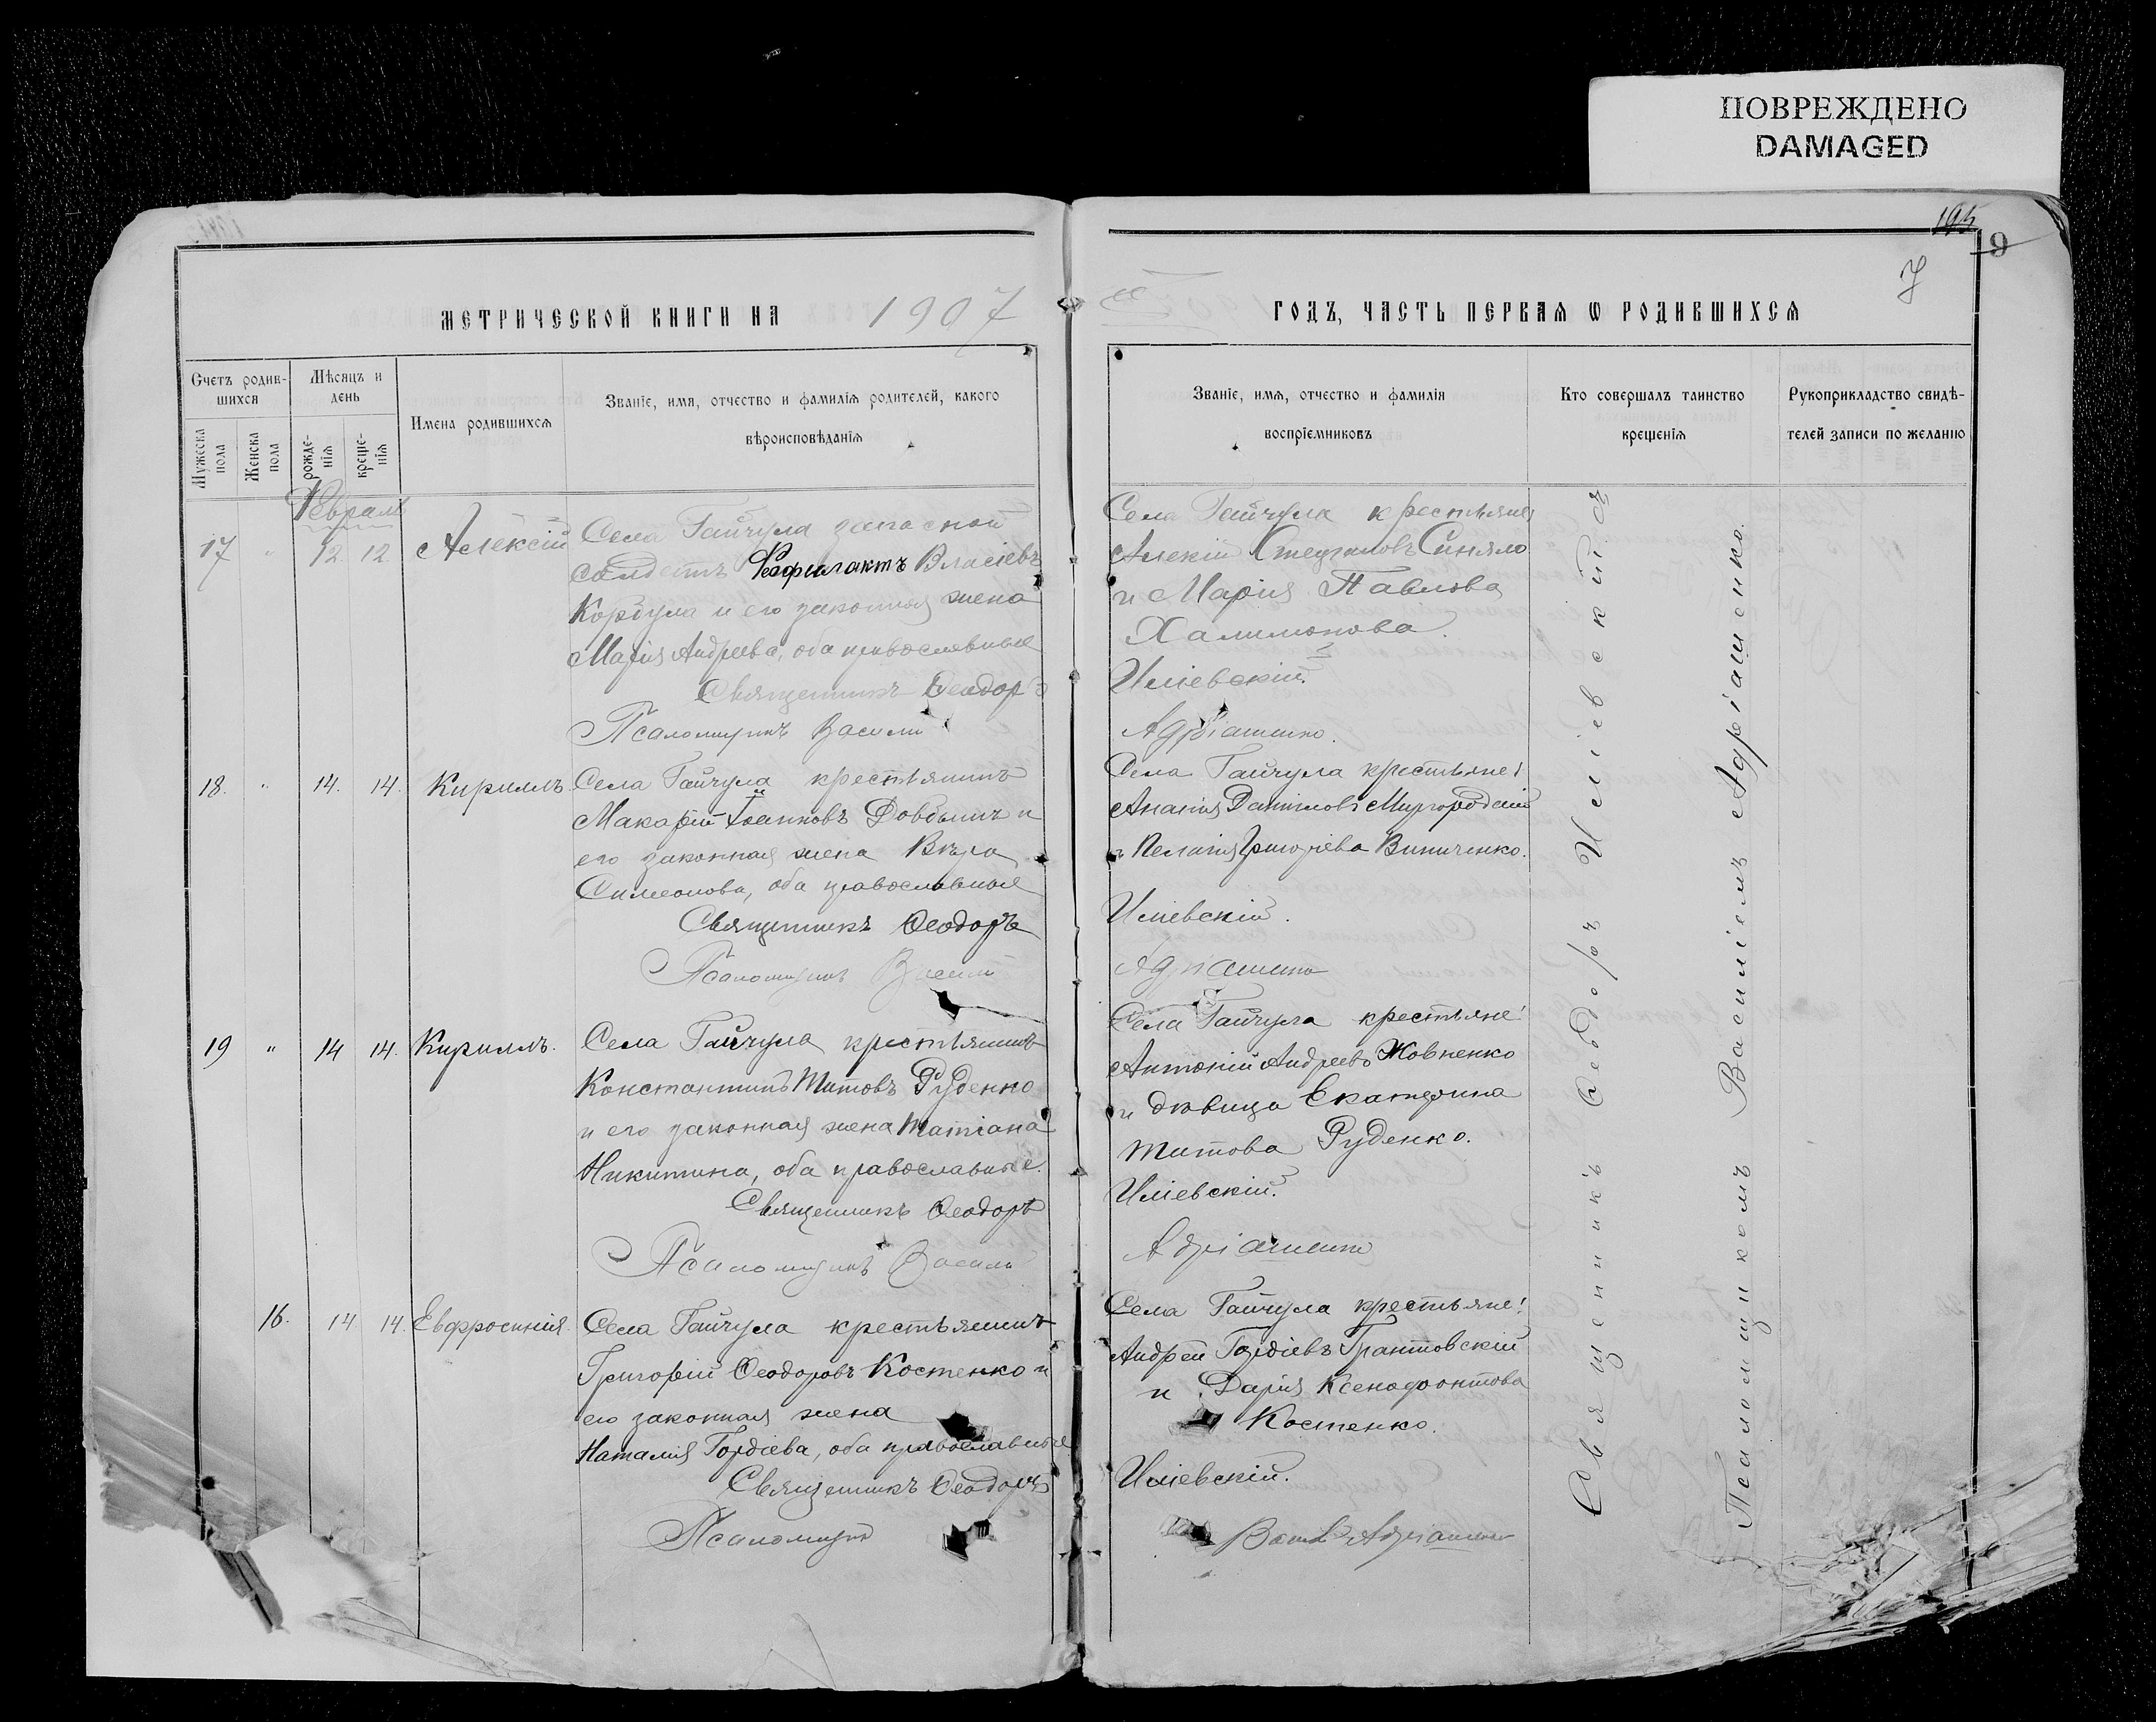 ПОВРЕЖДЕНО
DAMAGED
195
9
7
МЕТРИЧЕСКОЙ КНИГИ НА 1907
Счетъ родив-
шихся
Мѣсяцъ и
день
Имена родившихся
Званіе, имя, отчество и фамилія родителей, какого
вѣроисповѣданія
Мужеска
пола
Женска
пола
рожде-
нія
креще-
нія
Февраль
17 " 12. 12. Алексій
Села Гайчула запасной
солдатъ Феофилактъ Власіевъ
и его законная жена
Марія Андреева, оба православные
Священникъ Ѳеодоръ
Псаломщикъ Василій
18. " 14. 14. Кириллъ.
Села Гайчула крестьянинъ
Макарій Іоанновъ Довбышъ и
его законная жена Вѣра
Симеонова, оба православные
Священникъ Ѳеодоръ
Псаломщикъ Василій
19 " 14 14. Кириллъ.
Села Гайчула крестьянинъ
Константинъ Титовъ Руденко
и его законная жена Татіана
Никитина, оба православные.
Священникъ Ѳеодоръ
Псаломщикъ Василій
16. 14 14. Евфросинія.
Села Гайчула крестьянинъ
Григорій Ѳеодоровъ Костенко и
его законная жена
Наталія Гордіева, оба православные
Священникъ Ѳеодоръ
Псаломщик
ГОДЪ, ЧАСТЬ ПЕРВАЯ Ѡ РОДИВШИХСЯ
Званіе, имя, отчество и фамилія
воспріемниковъ
Кто совершалъ таинство
крещенія
Рукоприкладство свидѣ-
телей записи по желанію
Села Гайчула крестьяне
Алексій Стефановъ Синяло
и Марія Павлова
Халимонова.
Иліевскій.
Адріашенко.
Села Гайчула крестьяне:
Ананія Даніиловъ Миргородскій
и Пелагія Григоріева Виниченко.
Иліевскій.
Адріашенко
Села Гайчула крестьяне:
Антоній Андреевъ Жовненко
и дѣвица Екатерина
Титова Руденко.
Иліевскій.
Адріашенко
Села Гайчула крестьяне:
Андрей Гордіевъ Грантовскій
и Дарія Ксенофонтова
Костенко.
Иліевскій.
Васил Адріашенко
Священникъ Ѳеодоръ Иліевскій съ
Псаломщикомъ Василіемъ Адріашенко.